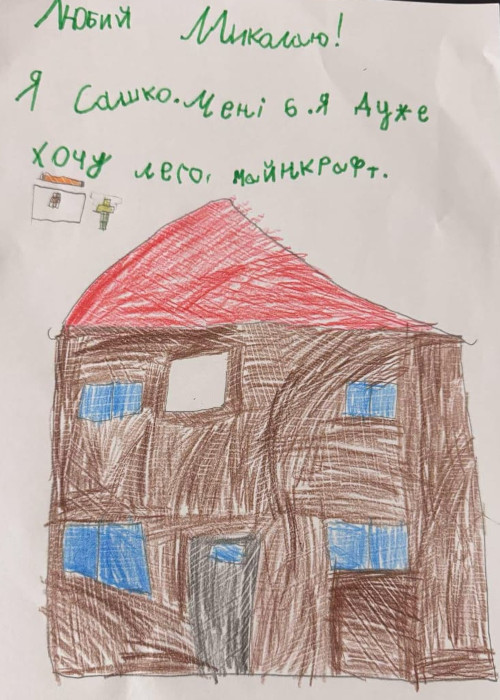 Любий Миколаю!
Я Сашко. Мені 6. Я дуже
хочу лего, майнкрафт.